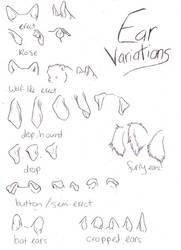 Ear
Variations
erect
Rose
Wolf-like erect
drop, hound
drop
furry ears
button/semi-erect
bat ears
cropped ears